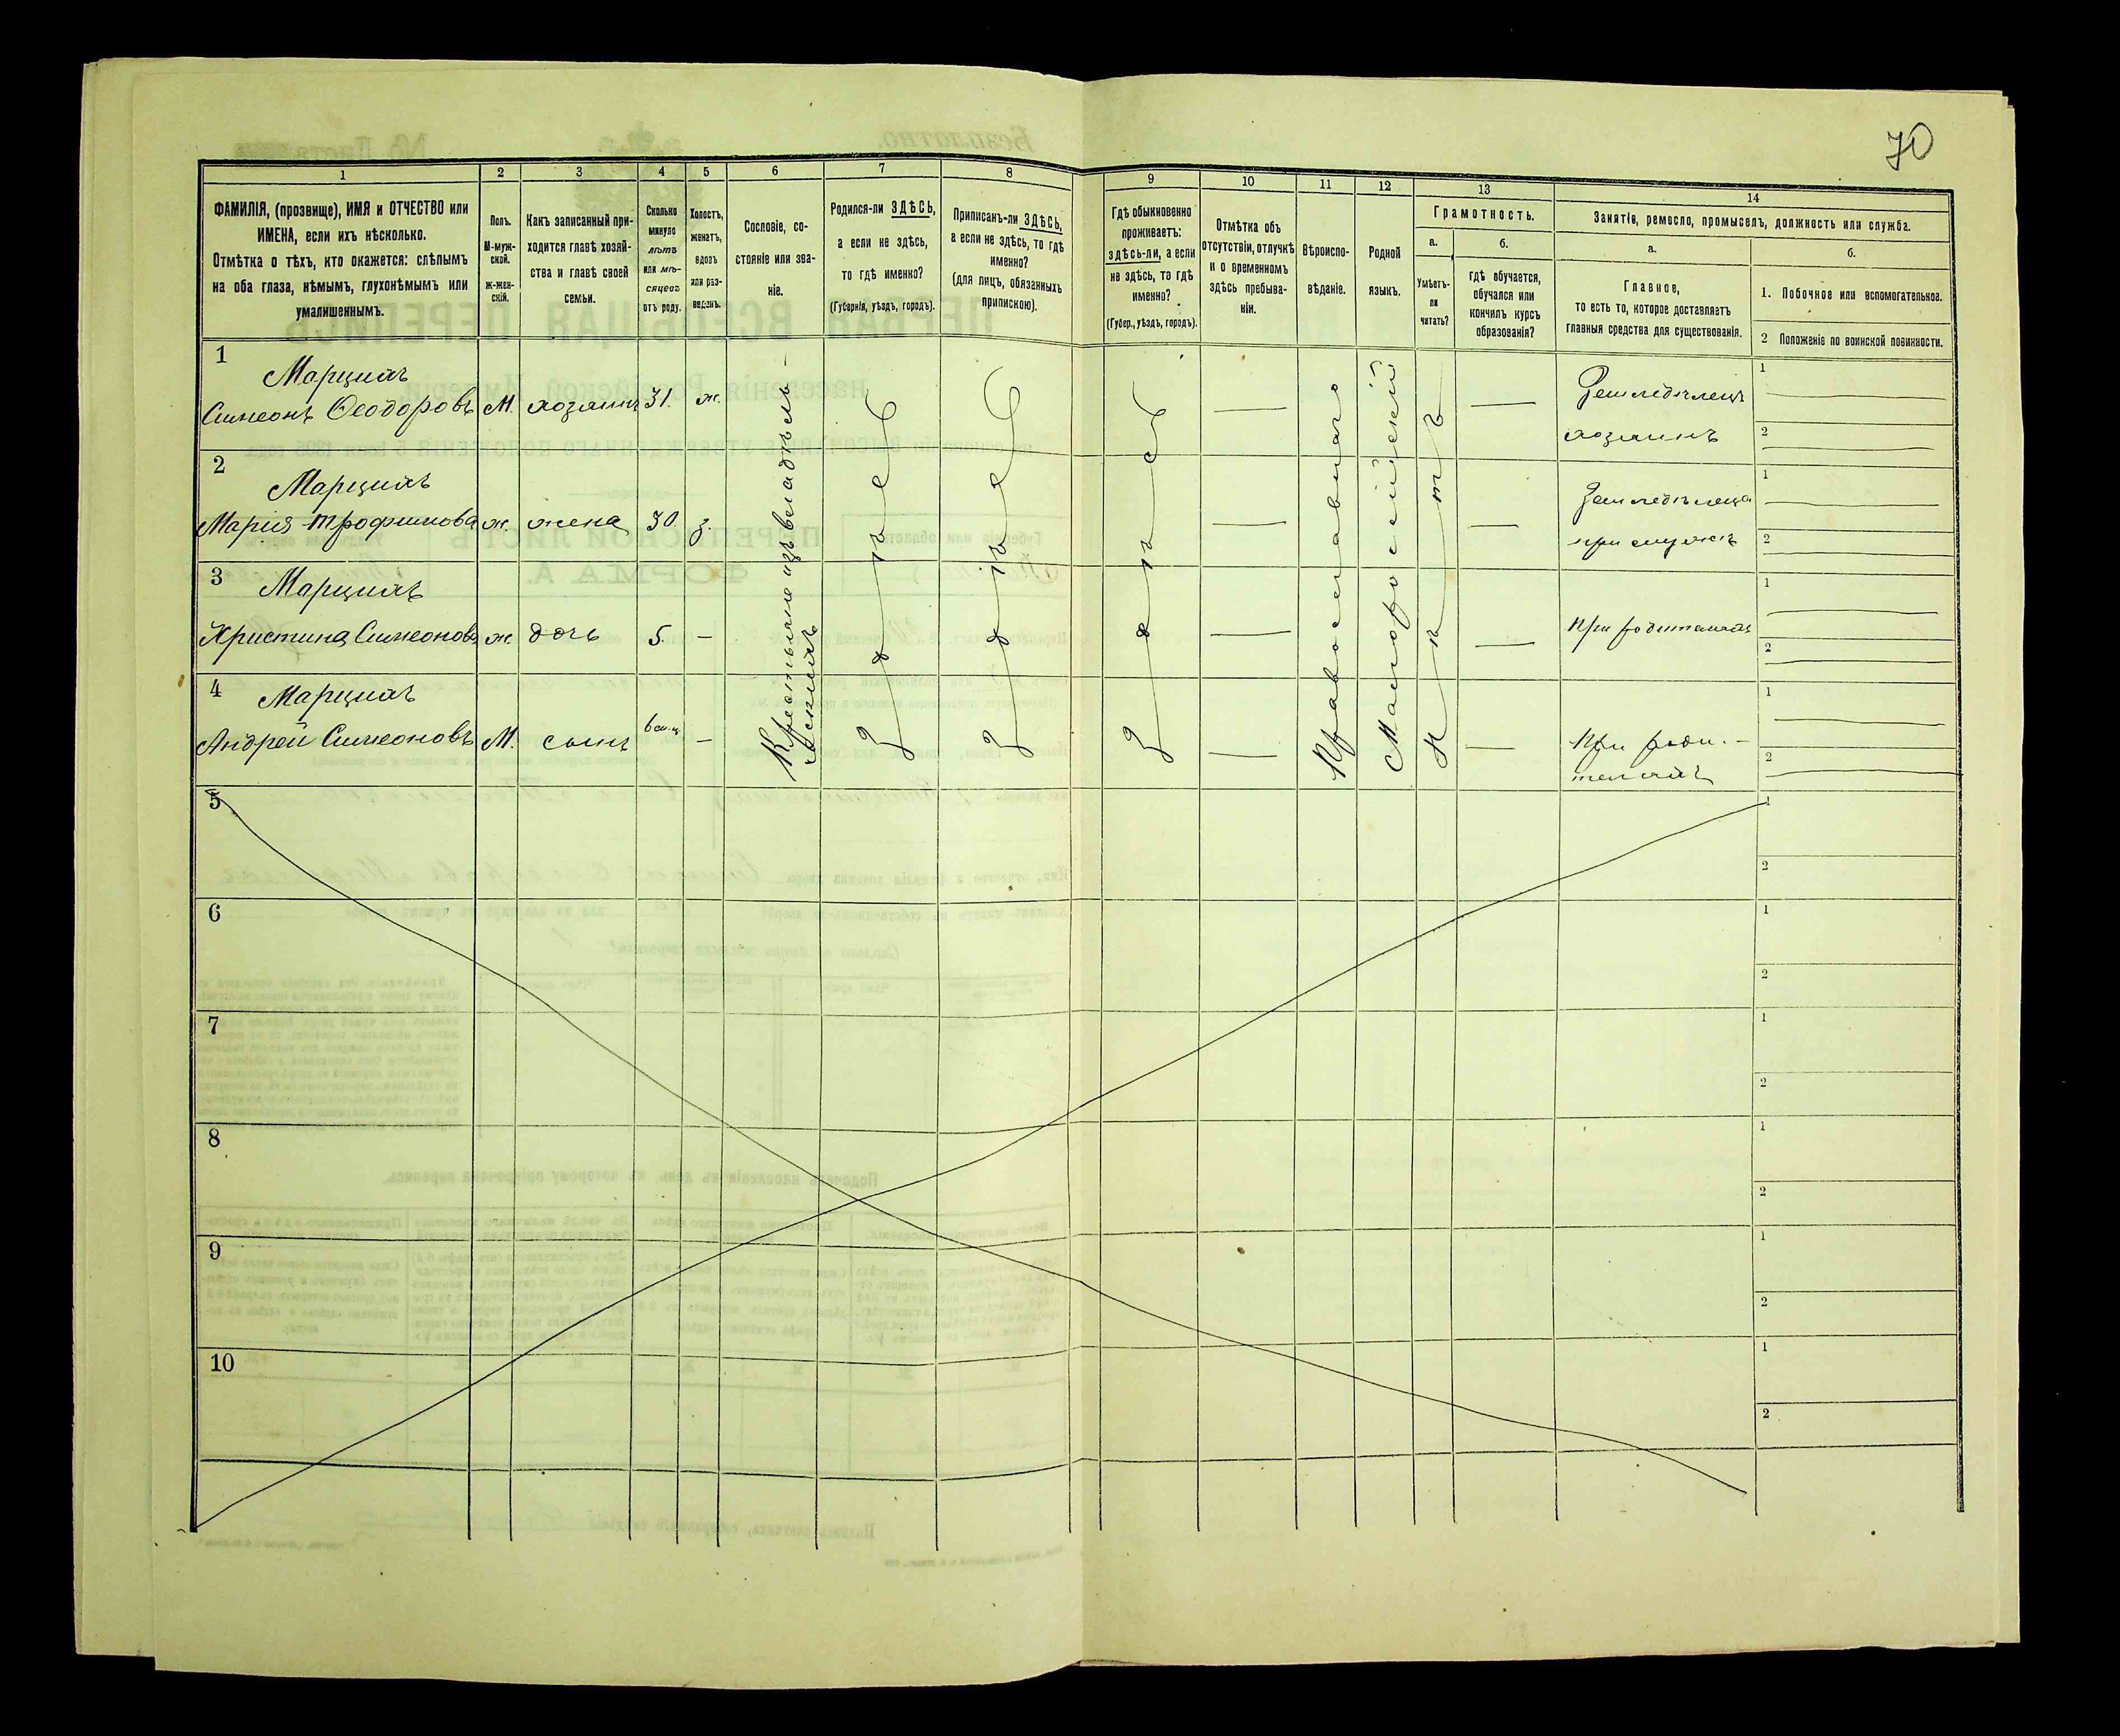 70
1
2
3
4
5
6
7
8
9
10
11
12
13
14
ФАМИЛІЯ, (прозвище), ИМЯ и ОТЧЕСТВО или
ИМЕНА, если ихъ нѣсколько.
Отмѣтка о тѣхъ, кто окажется: слѣпымъ
на оба глаза, нѣмымъ, глухонѣмымъ или
умалишеннымъ.
Полъ.
М-муж-
ской.
ж-жен-
скій.
Какъ записанный при-
ходится главѣ хозяй-
ства и главѣ своей
семьи.
Сколько
минуло
лѣтъ
или мѣ-
сяцевъ
отъ роду.
Холостъ,
женатъ,
вдовъ
или раз-
веденъ.
Сословіе, со-
стояніе или зва-
ніе.
Родился-ли ЗДѢСЬ,
а если не здѣсь,
то гдѣ именно?
(Губернія, уѣздъ, городъ).
Приписанъ-ли ЗДѢСЬ,
а если не здѣсь, то гдѣ
именно?
(для лицъ, обязанныхъ
припискою).
Гдѣ обыкновенно
проживаетъ:
здѣсь-ли, а если
не здѣсь, то гдѣ
именно?
(Губер., уѣздъ, городъ).
Отмѣтка объ
отсутствіи, отлучкѣ
и о временномъ
здѣсь пребыва-
ніи.
Вѣроиспо-
вѣданіе.
Родной
языкъ.
Грамотность.
а.
Умѣетъ-
ли
читать?
б.
гдѣ обучается,
обучался или
кончилъ курсъ
образованія?
Занятіе, ремесло, промыселъ, должность или служба.
а.
Главное,
то есть то, которое доставляетъ
главныя средства для существованія.
б.
1. Побочное или вспомогательное.
2 Положеніе по воинской повинности.
1
Марциях
Симеонъ Ѳеодоровъ
М.
хозяинъ
31.
ж.
Крестьяне изъ владѣль-
ческихъ
здѣсь
здѣсь
здѣсь
Православнаго
Малороссійскій
нѣтъ
Земледѣлецъ
хозяинъ
1
2
2
Марциях
Марія Трофимова
ж.
жена
30.
з.
Земледѣлица
1
2
3
Марциях
Христина Симеонова
ж.
дочь
5.
При родителяхъ
1
2
4
Марциях
Андрей Симеоновъ
М.
сынъ
При роди-
теляхъ
1
2
5
1
2
6
1
2
7
1
2
8
1
2
9
1
2
10
1
2